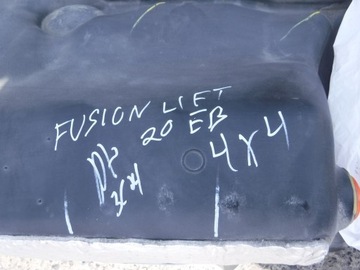 FUSION LIFT
20 EB
4x4